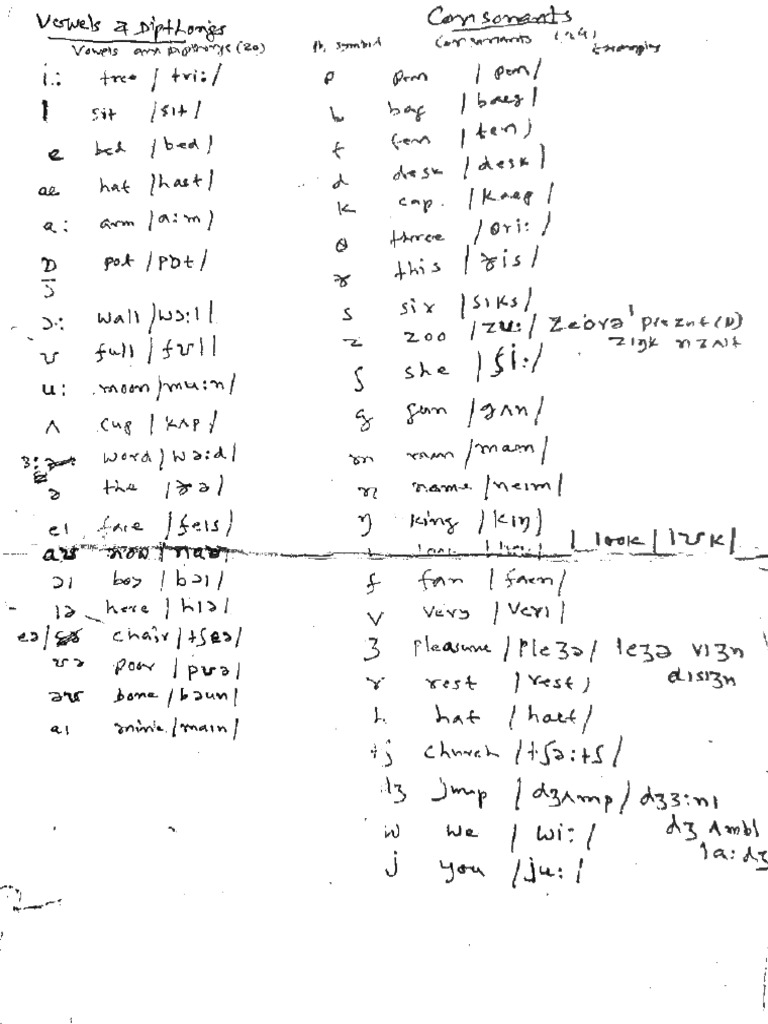 Vowels & Dipthongs
Vowels and Dipthongs (20)
i: tree / tri: /
I sit / sIt /
e bed / bed /
ae hat / haet /
a: arm / a:m /
ɒ pot / pɒt /
ɔ: wall / wɔ:l /
ʊ full / fʊl /
u: moon / mu:n /
ʌ cup / kʌp /
ɜ: word / wə:d /
ə the / ðə /
eI face / feIs /
aʊ now / naʊ /
ɔI boy / bɔI /
Iə here / hIə /
eə / chair / tʃeə /
ʊə poor / pʊə /
əʊ bone / bəun /
aI mine / maIn /
Consonants
Ph. symbol Consonants (24) Examples
p pen / pen /
b bag / baeg /
t ten / ten /
d desk / desk /
k cap. / kaep /
θ three / θri: /
ð this / ðIs /
s six / sIks /
z zoo / zu: / Zebrə preznt (N)
zIŋk rIzʌlt
ʃ she / ʃi: /
g gun / gʌn /
m man / maen /
n name / neIm /
ŋ king / kIŋ /
l look / lʊk /
f fan / faen /
v very / verI /
ʒ pleasure / pleʒə / leʒə vIʒn
dIsIʒn
r rest / rest /
h hat / haet /
tʃ church / tʃə:tʃ /
dʒ jump / dʒʌmp / dʒɜ:nI
w we / wi: / dʒʌmbl
j you / ju: / la:dʒ